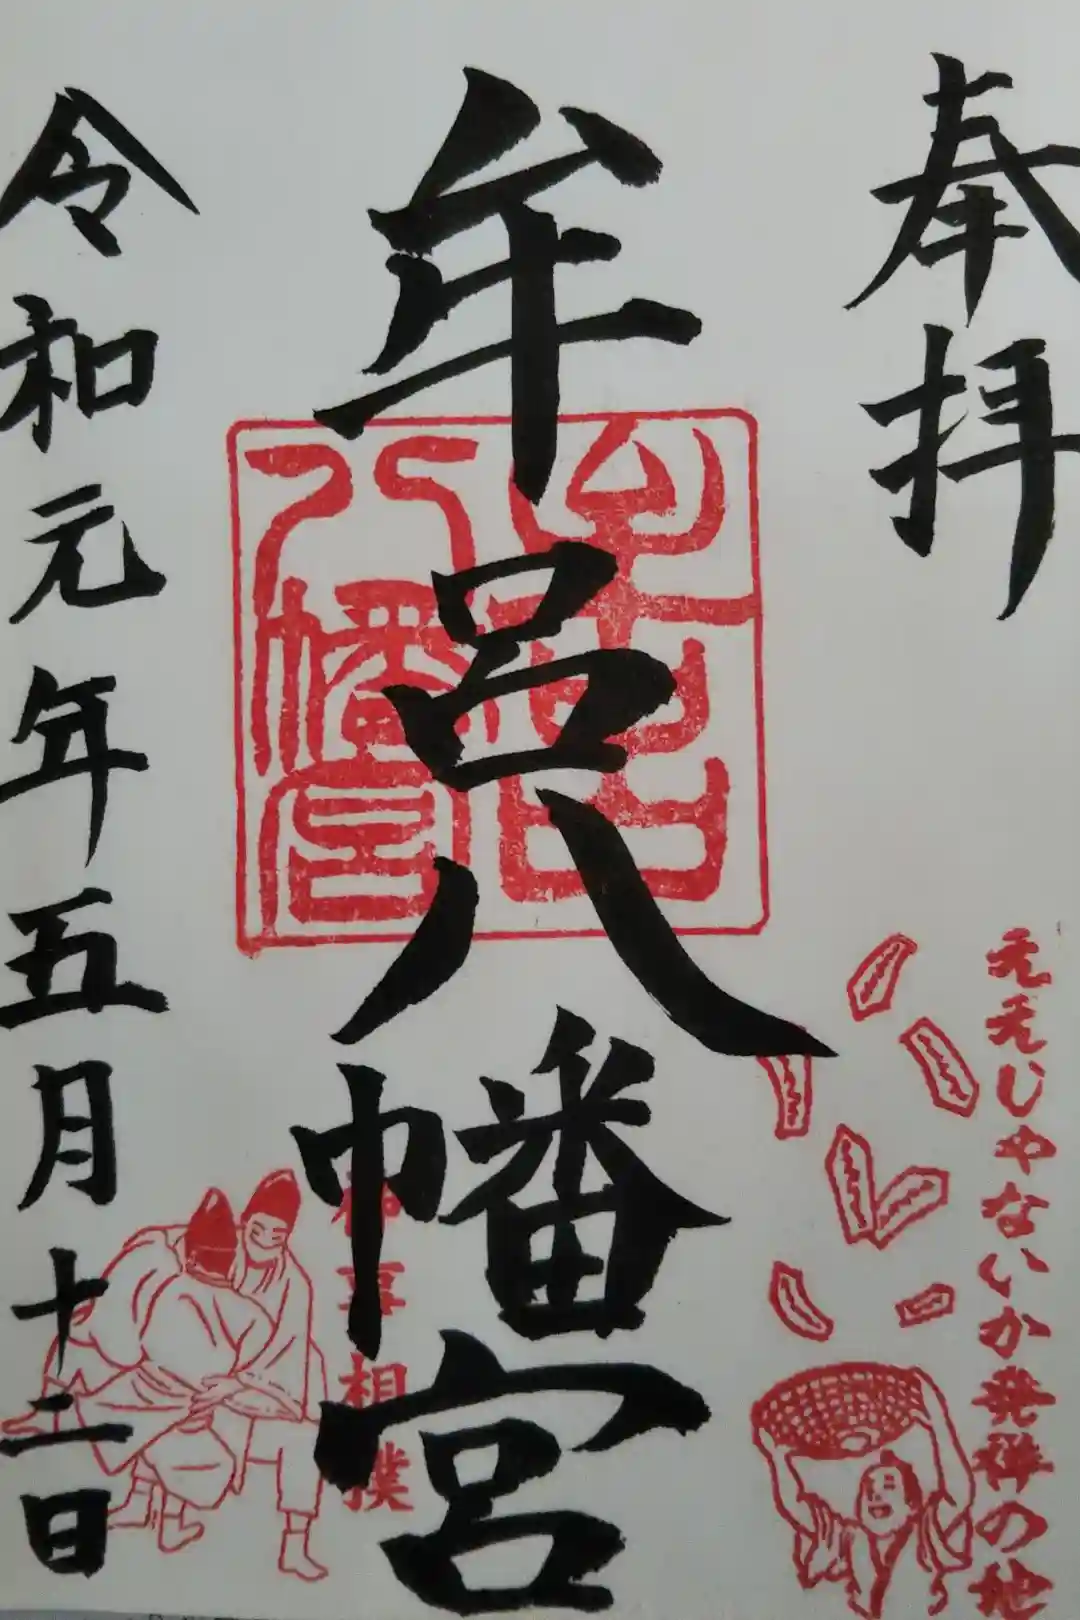 奉拝
牟呂八幡宮
牟呂
八幡宮
ええじゃないか発祥の地
事相撲
令和元年五月十二日